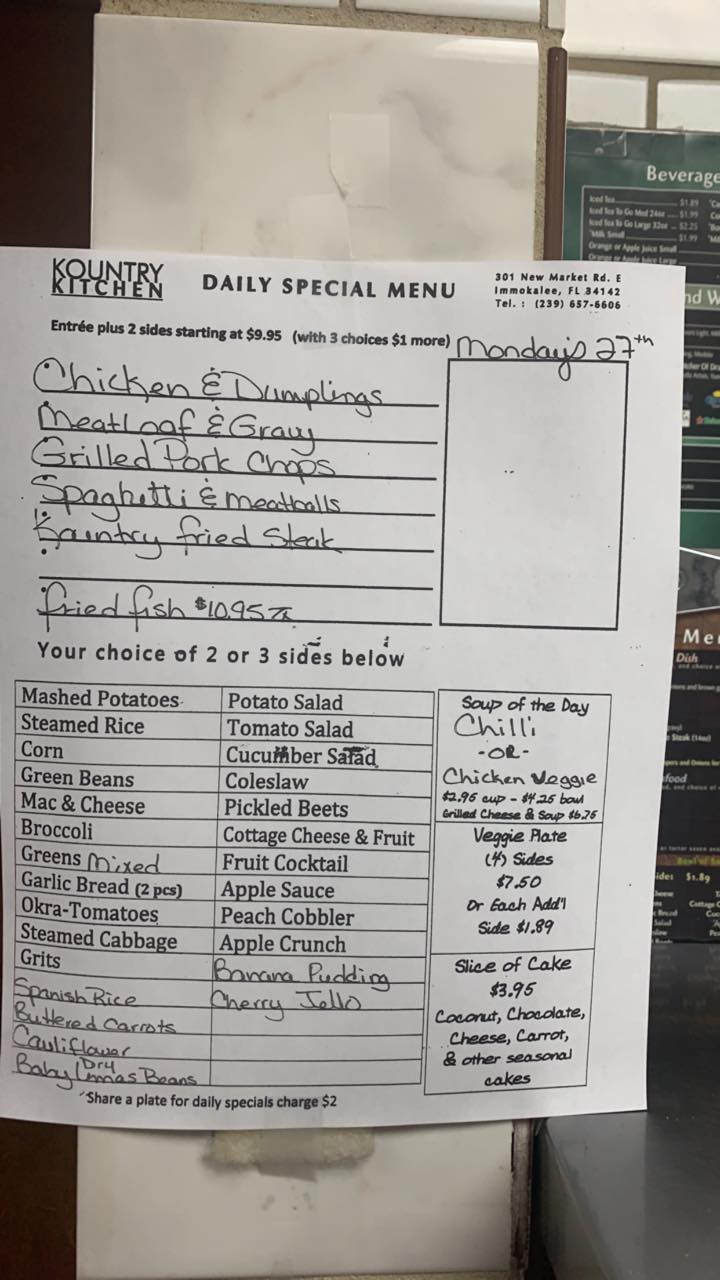 KOUNTRY
KITCHEN
DAILY SPECIAL MENU
301 New Market Rd. E
Immokalee, FL 34142
Tel. : (239) 657-6606
Entrée plus 2 sides starting at $9.95 (with 3 choices $1 more)
Monday's 27th
Chicken & Dumplings
Meatloaf & Gravy
Grilled Pork Chops
Spaghetti & meatballs
Kountry fried Steak
fried fish $10.95
Your choice of 2 or 3 sides below
Mashed Potatoes
Steamed Rice
Corn
Green Beans
Mac & Cheese
Broccoli
Greens mixed
Garlic Bread (2 pcs)
Okra-Tomatoes
Steamed Cabbage
Grits
Spanish Rice
Buttered Carrots
Cauliflower
Baby Dry Limas Beans
Potato Salad
Tomato Salad
Cucumber Salad
Coleslaw
Pickled Beets
Cottage Cheese & Fruit
Fruit Cocktail
Apple Sauce
Peach Cobbler
Apple Crunch
Banana Pudding
Cherry Jello
Soup of the Day
Chilli
-OR-
Chicken Veggie
$2.95 cup - $4.25 bowl
Grilled Cheese & Soup $6.75
Veggie Plate
(4) Sides
$7.50
Or Each Add'l
Side $1.89
Slice of Cake
$3.95
Coconut, Chocolate,
Cheese, Carrot,
& other seasonal
cakes
Share a plate for daily specials charge $2
Beverage
Iced Tea $1.89
Iced Tea To Go Med 24oz $1.99
Iced Tea To Go Large 32oz $2.25
Milk Small $1.99
Orange or Apple Juice Small
Orange or Apple Juice Large
nd W
Me
Dish
Steak (14oz)
food
ides $1.89